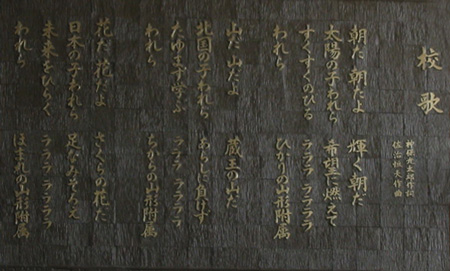 校歌
神保光太郎作詞
佐治恒夫作曲
朝だ 朝だよ 輝く朝だ
太陽の子われら 希望に燃えて
すくすくのびる ラララ ラララララ
われら ひかりの山形附属
山だ 山だよ 蔵王の山だ
北国の子われら あらしに負けず
たゆまず学ぶ ラララ ラララララ
われら ちからの山形附属
花だ 花だよ さくらの花だ
日本の子われら 足なみそろえ
未来をひらく ラララ ラララララ
われら ほまれの山形附属